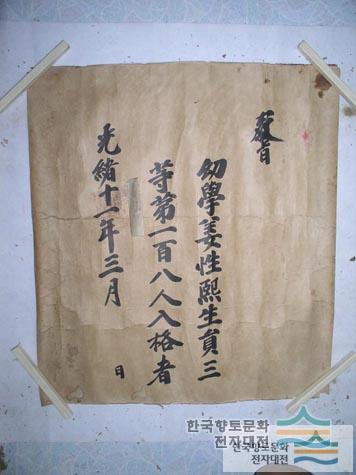 敎旨
幼學姜性熙生員三
等第一百八人入格者
光緖十一年三月　日
한국향토문화
전자대전
한국향토문화
전자대전